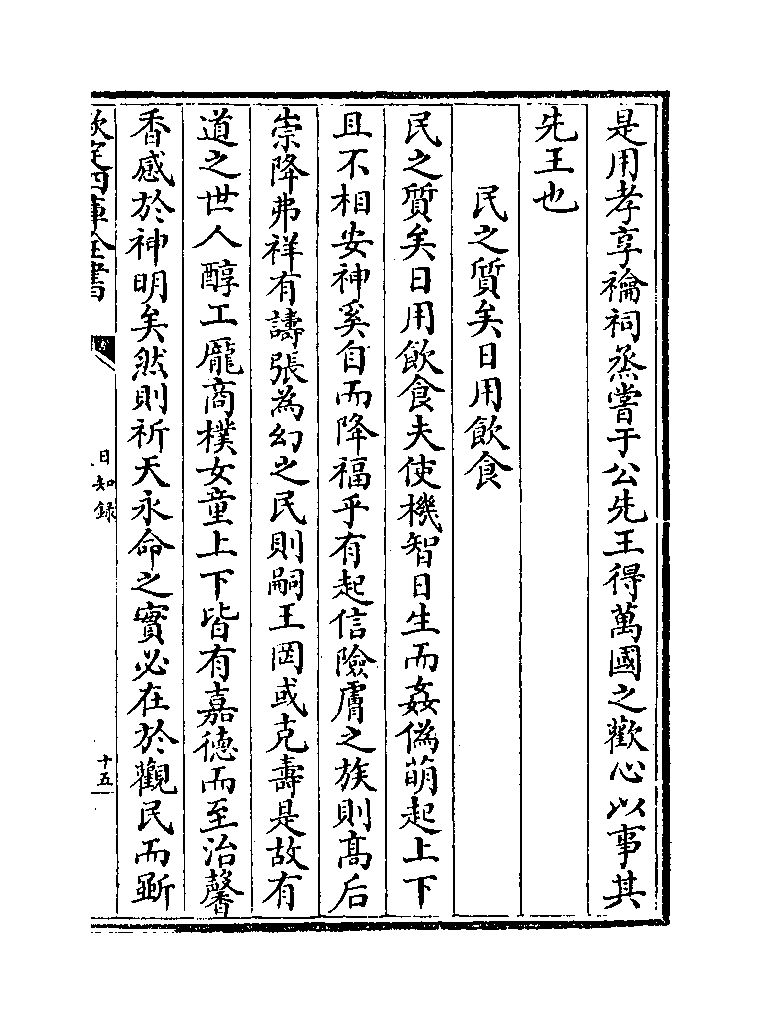 是用孝享禴祠烝嘗于公先王得萬國之歡心以事其
先王也
民之質矣日用飲食
民之質矣日用飲食夫使機智日生而姦偽萌起上下
且不相安神奚自而降福乎有起信險膚之族則髙后
崇降弗祥有譸張為幻之民則嗣王罔或克壽是故有
道之世人醇工龎商樸女童上下皆有嘉德而至治馨
香感於神明矣然則祈天永命之實必在於觀民而斵
欽定四庫全書
日知錄
十五